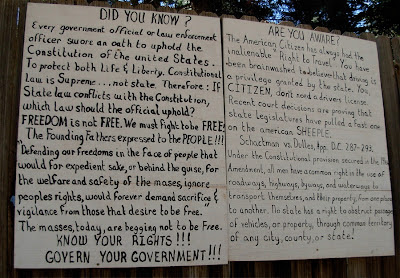 DID YOU KNOW?
Every government official or law enforcement
officer sworn an oath to uphold the
Constitution of the united States..
To protect both Life & Liberty. Constitutional
law is Supreme... not state. Therefore: If
State law conflicts with the Constitution,
which law should the official uphold?
FREEDOM is not FREE. We must fight to be FREE
The Founding Fathers expressed to the PEOPLE!!!
"Defending our freedoms in the face of people that
would for expedient sake, or behind the guise, for
the welfare and safety of the masses, ignore
peoples rights, would forever demand sacrifice" &
vigilance from those that desire to be free."
The masses, today, are begging not to be Free.
KNOW YOUR RIGHTS!!!
GOVERN YOUR GOVERNMENT!!!
ARE YOU AWARE?
The American Citizen has always had the
inalienable "Right to Travel". You have
been brainwashed to believe that driving is
a privilege granted by the state. You,
CITIZEN, don't need a drivers license.
Recent court decisions are proving that
state Legislatures have pulled a fast one
on the american SHEEPLE.
Schactman vs. Dulles, App. D.C. 287-293.
Under the Constitutional provision secured in the
Amendment, all men have a common right in the use of
roadways, highways, byways, and waterways to
transport themselves, and their property, from one place
to another. No state has a right to obstruct passage
of vehicles, or property, through common territory
of any city, county, or state.